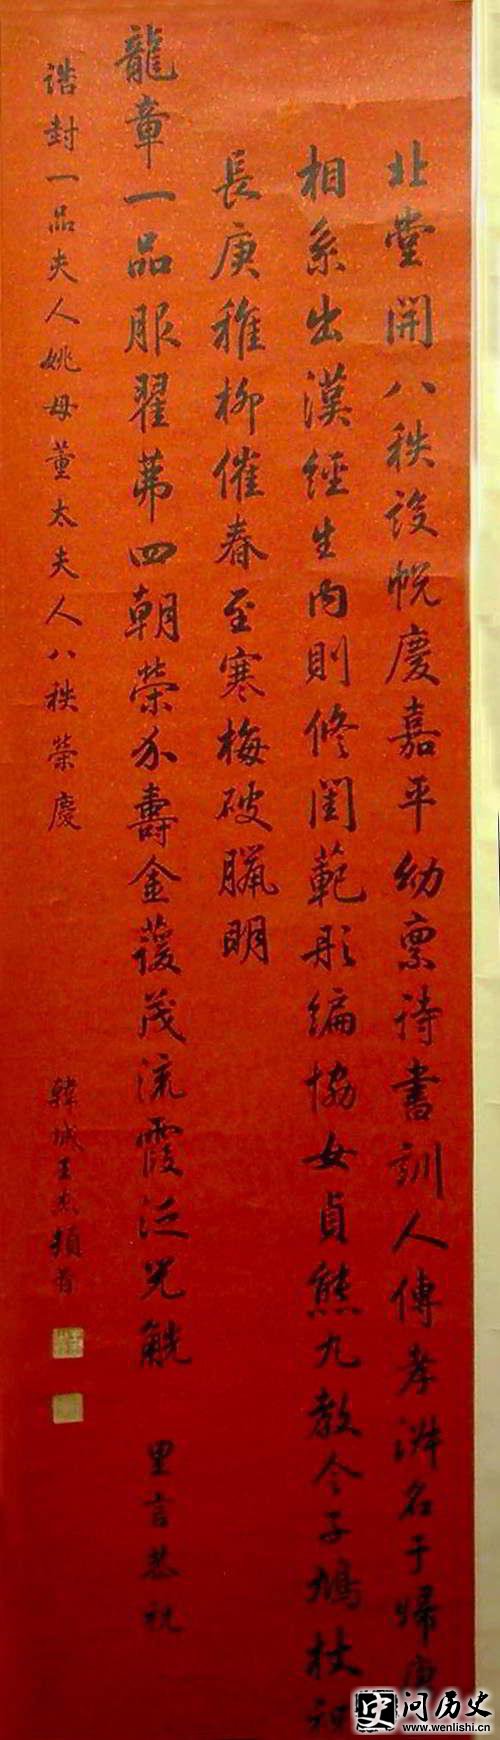 北堂開八秩設帨慶嘉平幼禀詩書訓人傳孝淑名于歸唐
相系出漢經生內則修閨範彤編協女貞熊丸教令子鳩杖祝
長庚稚柳催春至寒梅破臘明
龍章一品服翟茀四朝榮介壽金萲茂流霞泛兕觥 里言恭祝
誥封一品夫人姚母董太夫人八秩榮慶
韓城王杰頓首
问历史
www.wenlishi.cn